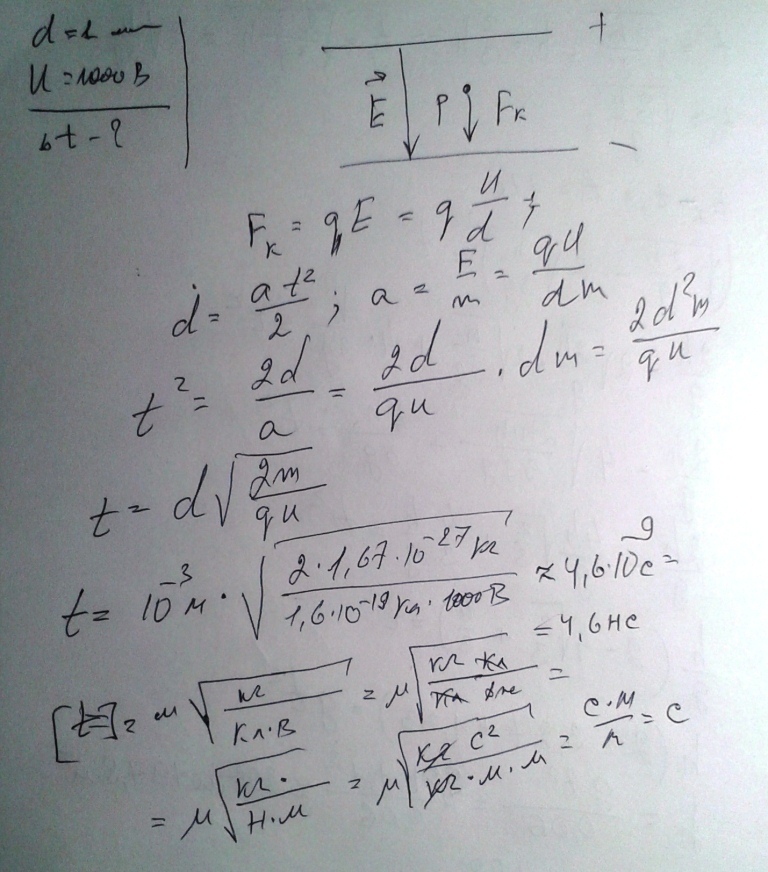 d = 1 мм
U = 1000 В
t - ?
+
E⃗ P Fк
—
Fк = qE = q U/d ;
d = at²/2 ; a = F/m = qU/dm
t² = 2d/a = 2d/qU · dm = 2d²m/qU
t = d√(2m/qU)
t = 10⁻³ м · √(2·1,67·10⁻²⁷ кг / 1,6·10⁻¹⁹ Кл · 1000 В) ≈ 4,6·10⁻⁹ с =
= 4,6 нс
[t] = м √(кг / Кл·В) = м √(кг Кл / Кл Дж) =
= м √(кг · / Н·м) = м √(кг с² / кг·м·м) = с·м/м = с